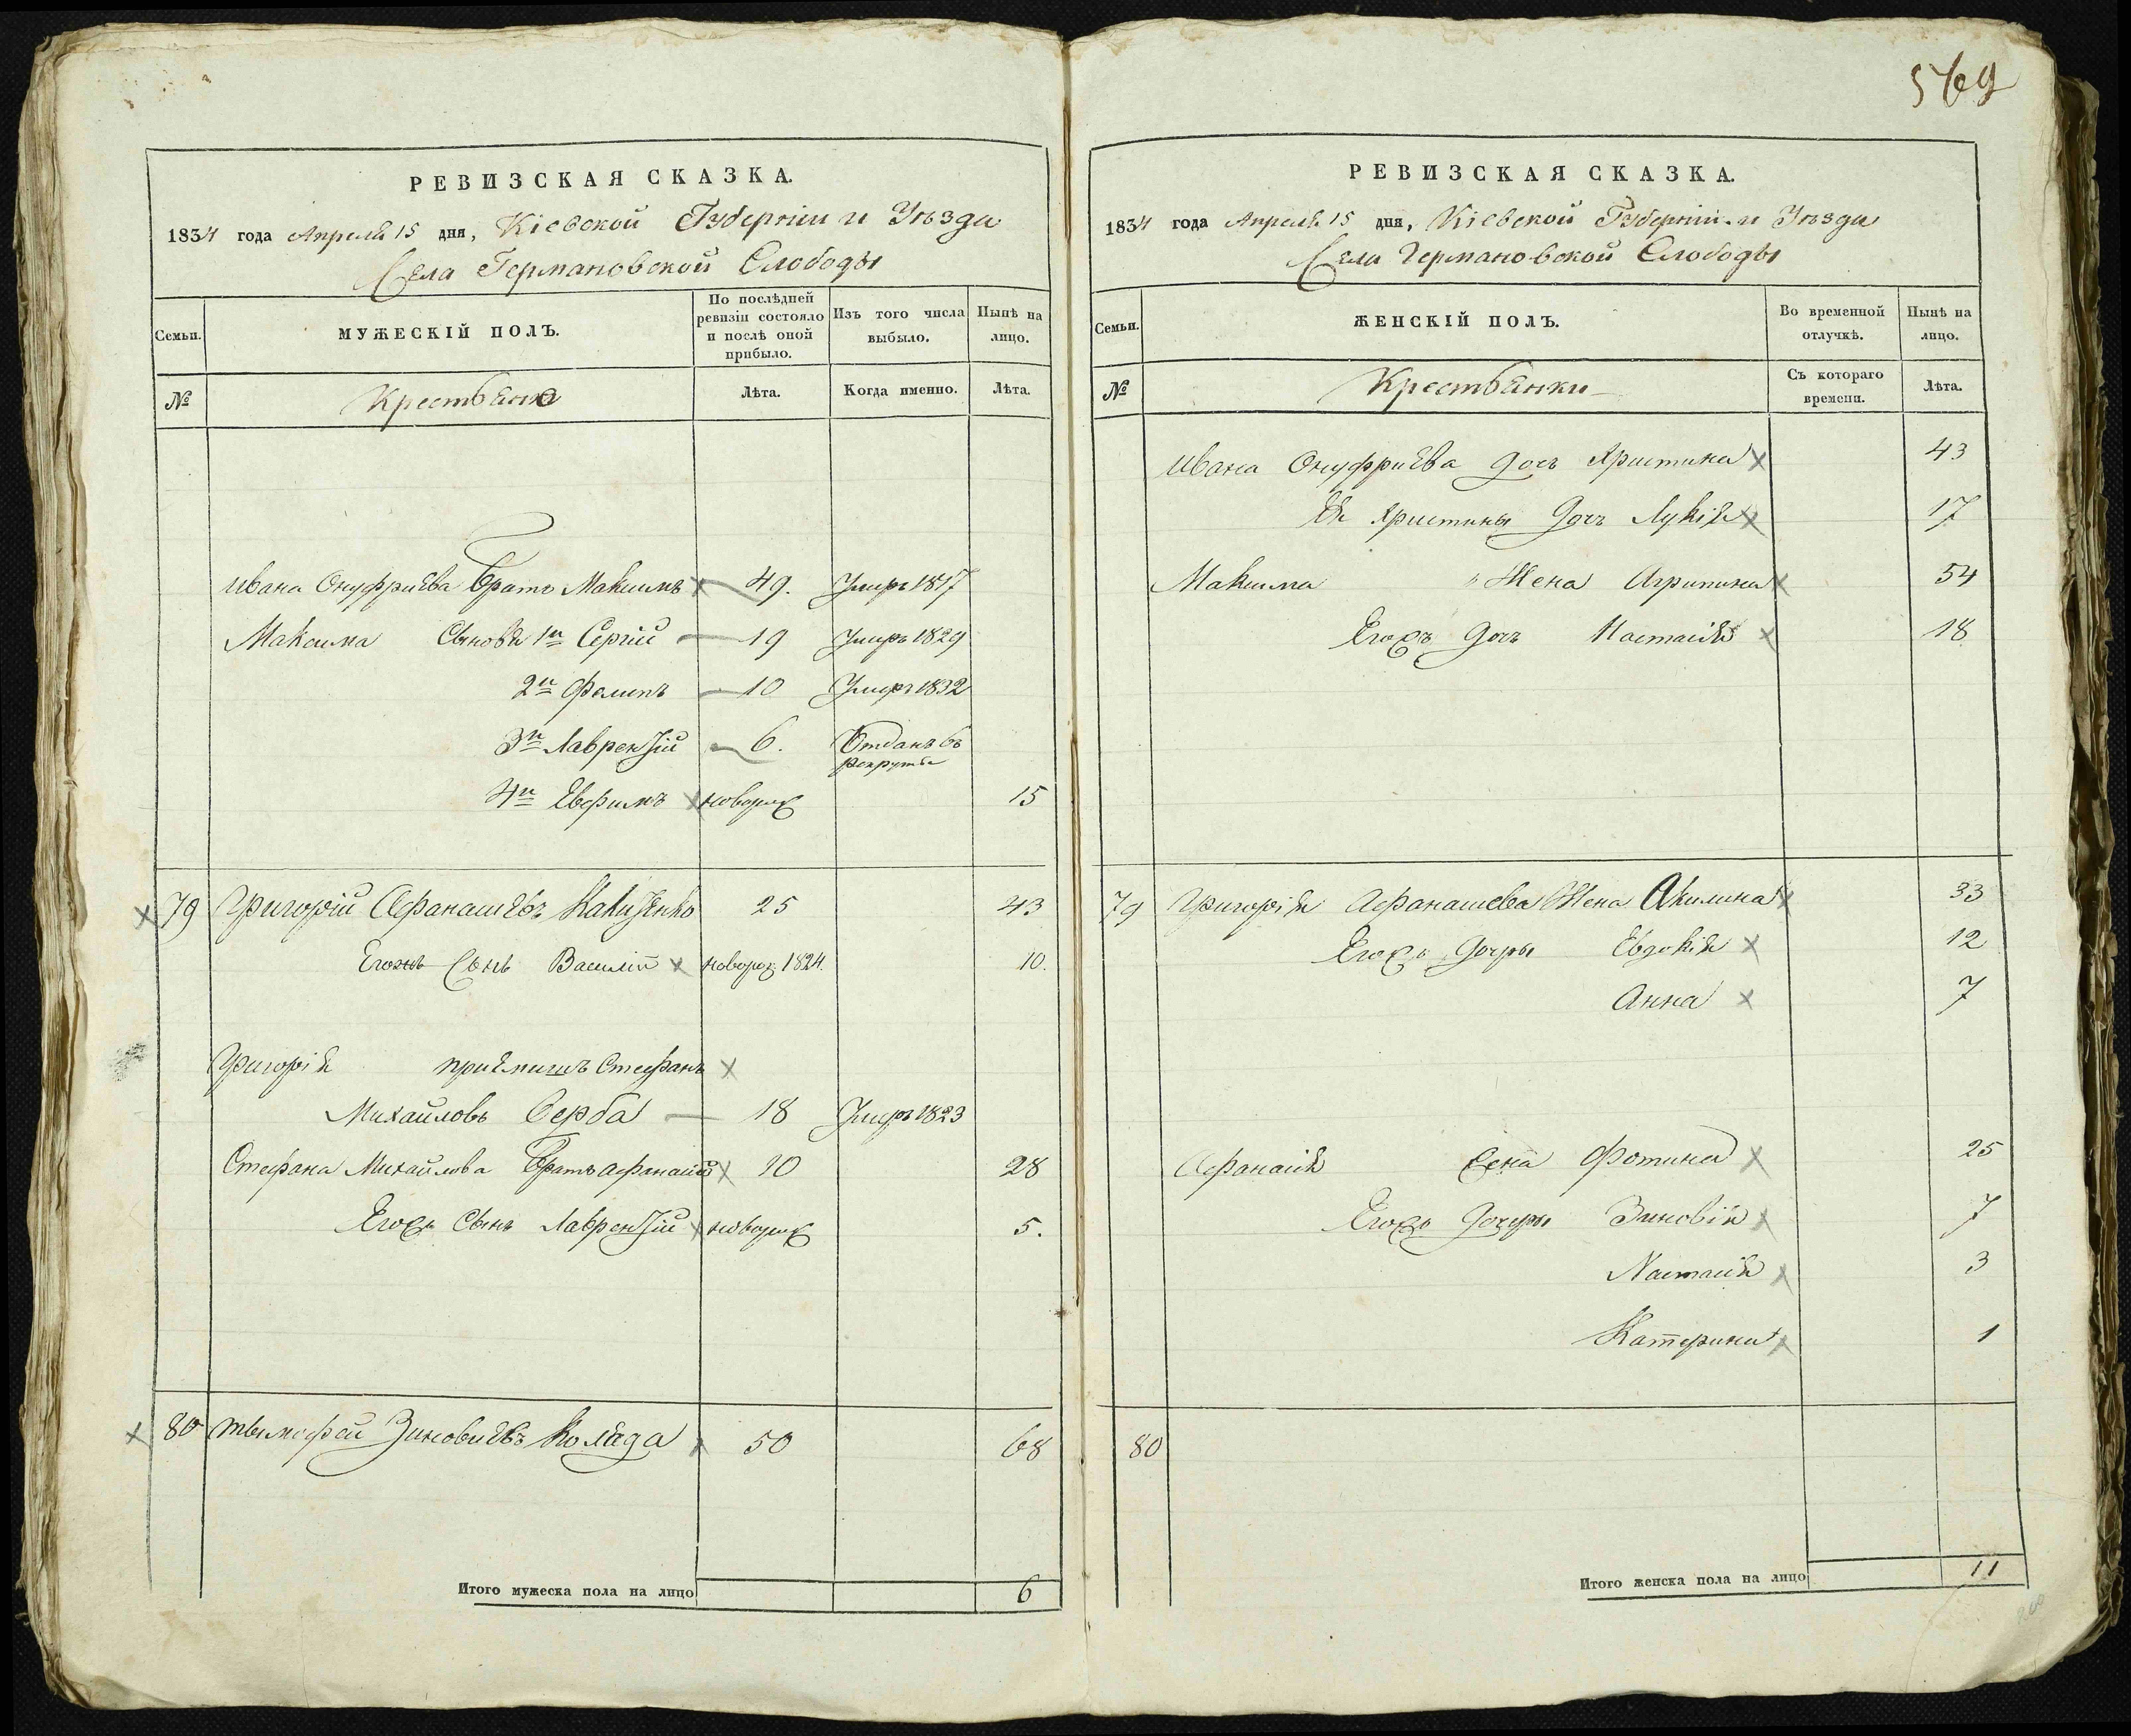 569
РЕВИЗСКАЯ СКАЗКА.
1834 года Апреля 15 дня, Кіевской Губерніи и Уѣзда
Села Германовской Слободы
Семьи.
МУЖЕСКІЙ ПОЛЪ.
По послѣдней ревизіи состояло и послѣ оной прибыло.
Изъ того числа выбыло.
Нынѣ на лицо.
№
Крестьяне
Лѣта.
Когда именно.
Лѣта.
Ивана Онуфриева братъ Максимъ 49. Умеръ 1817
Максима Сыновя 1й Сергій 19 Умеръ 1829
2й Филипъ 10 Умеръ 1832
3й Лаврентій 6. Отданъ въ рекруты
4й Евфимъ новорож 15
79 Григорій Афанашевъ 25 43
Егожъ Сынъ Василій новорож 1824. 10.
Григорія приемишъ Стефанъ
Михайловъ Серба 18 Умеръ 1823
Стефана Михайлова братъ афанасій 10 28
Егожъ Сынъ Лаврентій новорож 5.
80 тимофей Зиновиевъ Коляда 50 68
Итого мужеска пола на лицо 6
РЕВИЗСКАЯ СКАЗКА.
1834 года Апреля 15 дня, Кіевской Губерніи и Уѣзда
Села Германовской Слободы
Семьи.
ЖЕНСКІЙ ПОЛЪ.
Во временной отлучкѣ.
Нынѣ на лицо.
№
Крестьянки
Съ котораго времени.
Лѣта.
Ивана Онуфриева дочь Христина 43
Ея Христины Дочь Лукія 17
Максима Жена Агрипина 54
Егожъ дочь Настасія 18
79 Григорія Афанашева Жена Акилина 33
Егожъ дочеры Евдокія 12
Анна 7
Афанасія Жена Фотина 25
Егожъ Дочеры Зиновія 7
Настасія 3
Катерина 1
80
Итого женска пола на лицо 11